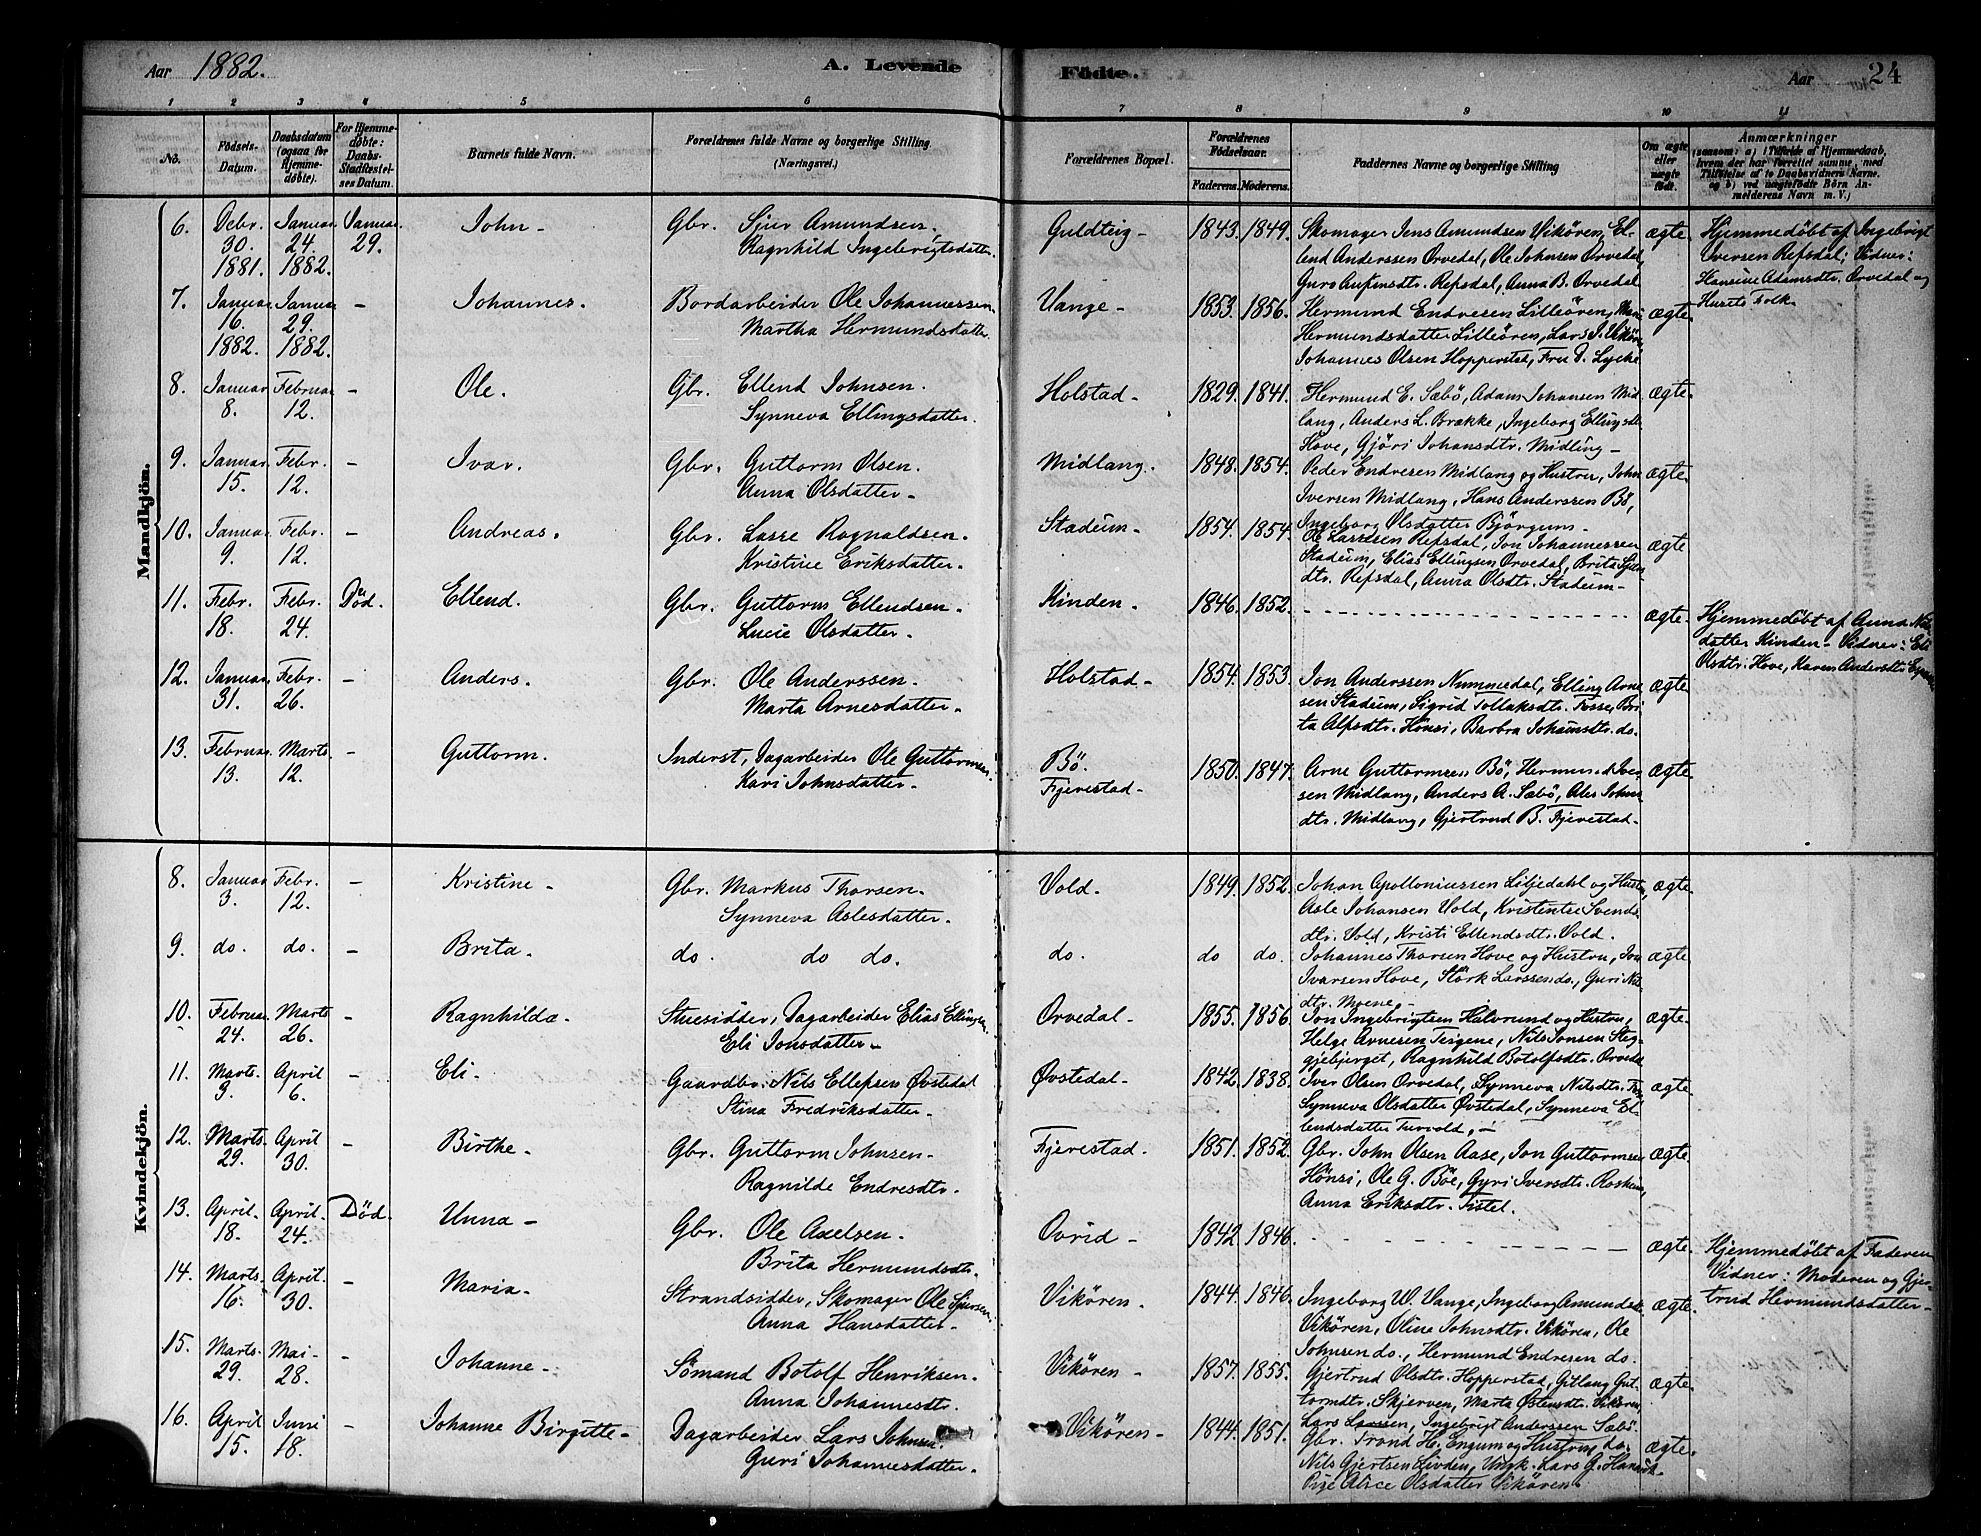 Aar 1882. A. Levende Födte. Aar 24
1 2 3 4 5 6 7 8 9 10 11
No. Födsels-Datum. Daabsdatum (ogsaa for Hjemmedöbte). For Hjemmedöbte: Daabs-Stadfæstelses Datum. Barnets fulde Navn. Forældrenes fulde Navne og borgerlige Stilling. (Næringsvei.) Forældrenes Bopæl. Forældrenes Födselsaar. Faderens. Moderens. Faddernes Navne og borgerlige Stilling Om ægte eller uægte födt. Anmærkninger (saasom: a) i Tilfælde af Hjemmedaab, hvem der har forrettet samme, med Tilföielse af to Daabsvidners Navne. og b) ved uægtefödte Börn Anmelderens Navn m. V.)
Mandkjön.
6. Debr. 30. 1881. Januar 24. 1882. Januar 29. John - Gbr. Sjur Amundsen, Ragnhild Ingebrigtsdatter. Guldteig - 1843. 1849. Skomager Jens Amundsen Vikören, El-
lend Anderssen Orvedal, Ole Johnsen Orvedal,
Guro Anfinsdtr. Refsdal, Anna B. Orvedal ægte. Hjemmedöbt af Ingebrigt
Iversen Refsdal; Vidner:
Hansine Adamsdtr. Orvedal og
Husets Folk
7. Januar 16. 1882. Januar 29. 1882. - Johannes. Bordarbeider Ole Johannessen Martha Hermundsdatter. Vange - 1853. 1856. Hermund Endresen Lilleören,
Hermundsdatter Lilleören, Lars J. Vikör
Johannes Olsen Hopperstad, Fru D. Lycke ægte.
8. Januar 8. Februar 12. - Ole. Gbr. Ellend Johnsen. Synneva Ellingsdatter. Holstad - 1829. 1841. Hermund E. Sæbö, Adam Johansen Mid-
lang, Anders L. Brække, Ingeborg Ellingsdtr.
Hove, Gjöri Johansdtr. Midling - ægte.
9. Januar 15. Febr. 12. - Ivar. Gbr. Guttorm Olsen. Anna Olsdatter - Midlang. 1848. 1854. Peder Endresen Midlang og Hustru, John
Iversen Midlang, Hans Anderssen Bö,
Ingeborg Olsdatter Björgum - ægte.
10. Januar 9. Febr. 12. - Andreas. Gbr. Lasse Ragnaldsen. Kristine Eriksdatter. Stadeum - 1854. 1854. Ole Lassesen Refsdal, Jon Johannessen
Stadeum, Elias Ellingsen Orvedal, Brita Sjurs-
dtr. Refsdal, Anna Olsdtr. Stadeum - ægte
11. Febr. 18. Febr. 24. Död. Ellend. Gbr. Guttorm Ellendsen. Lucie Olsdatter. Hinden - 1846. 1852. ægte. Hjemmedöbt af Anna
datter Hinden - Vidner: Eli
Olsdtr. Hove, Karen Andersdtr.
12. Januar 31. Febr. 26. - Anders. Gbr. Ole Anderssen. Marta Arnesdatter. Holstad - 1854. 1853. Jon Anderssen Nummedal, Elling Arne-
sen Stadeum, Sigrid Tollaksdtr. Fosse, Bri-
ta Alfsdtr. Hönsi, Barbra Johansdtr. do. ægte
13. Februar 13. Marts 12. - Guttorm. Inderst, Dagarbeider Ole Guttormsen. Kari Johnsdatter. Bö. Fjerestad - 1850. 1847. Arne Guttormsen Bö, Hermund Iver-
sen Midlang, Anders A. Sæbö, Ales Johns-
dtr. Midlang, Gjertrud B. Fjerestad. ægte.
Kvindekjön.
8. Januar 3. Febr. 12. - Kristine - Gbr. Markus Thorsen. Synneva Aslesdatter. Vold. 1849. 1852. Johan Apolloniussen Liljedahl og Hustr.,
Asle Johansen Vold, Svends-
dtr. Vold, Kristi Ellendsdtr. Vold. ægte.
9. do. do. - Brita. do. do do. do. do do. Johannes Thorsen Hove og Hustru, Jon
Ivarsen Hove, Störk Larssen do., Guri Nils-
dtr. Moene. ægte
10. Februar 24. Marts 26. - Ragnhilda. Stuesidder, Dagarbeider Elias Ellingsen Eli Jonsdatter - Orvedal - 1855. 1856. Jon Ingebrigtsen Halvrund og Hustru,
Helge Arnesen Teigene, Nils Jonsen Steg-
gjebjerget, Ragnhild Botolfsdtr. Orvedal ægte.
11. Marts 9. April 6. - Eli. Gaardbr. Nils Ellefsen Övstedal Stina Fredriksdatter. Övstedal - 1842. 1838. Iver Olsen Orvedal, Synneva Nilsdtr.
Synneva Olsdatter Övstedal, Synneva El-
lendsdatter Turvold. - ægte.
12. Marts 29. April 30. - Birthe. Gbr. Guttorm Johnsen - Ragnilde Endresdtr. Fjerestad. 1851. 1852. Gbr. John Olsen Aase, Jon Guttormsen
Hönsi, Ole G. Böe, Gyri Iversdtr.
Anna Eriksdtr. Tistel. ægte.
13. April. 18. April. 24. Död. Unna - Gbr. Ole Axelsen. Brita Hermundsdtr. Ovrid - 1842 1846. ægte. Hjemmedöbt af Faderen
Vidner: Moderen og Gjer-
trud Hermundsdatter -
14. Marts 16. April. 30. - Maria. Strandsidder, Skomager Ole Sjursen Anna Hansdatter. Vikören. 1844. 1846. Ingeborg W. Vange, Ingeborg Amundsd.
Vikören, Oline Johnsdtr. Vikören, Ole
Johnsen do., Hermund Endresen do. ægte.
15. Marts 29. Mai - 28. - Johanne - Sömand Botolf Henriksen. Anna Johannesdtr. Vikören - 1857. 1855. Gjertrud Olsdtr. Hopperstad, Gitlaug Gut-
tormdtr. Skjerven, Marta Östensdtr. Vikören,
Lars Larssen, Ingebrigt Anderssen Sæbö. ægte.
16. April 15. Juni 18. - Johanne Birgitte - Dagarbeider Lars Johnsen Guri Johannesdatter. Vikören - 1844. 1851. Gbr. Trond H. Engum og Hustru, do.
Nils Gjertsen Livden, Ungk. Lars G.
Pige Alice Olsdatter Vikören. ægte.